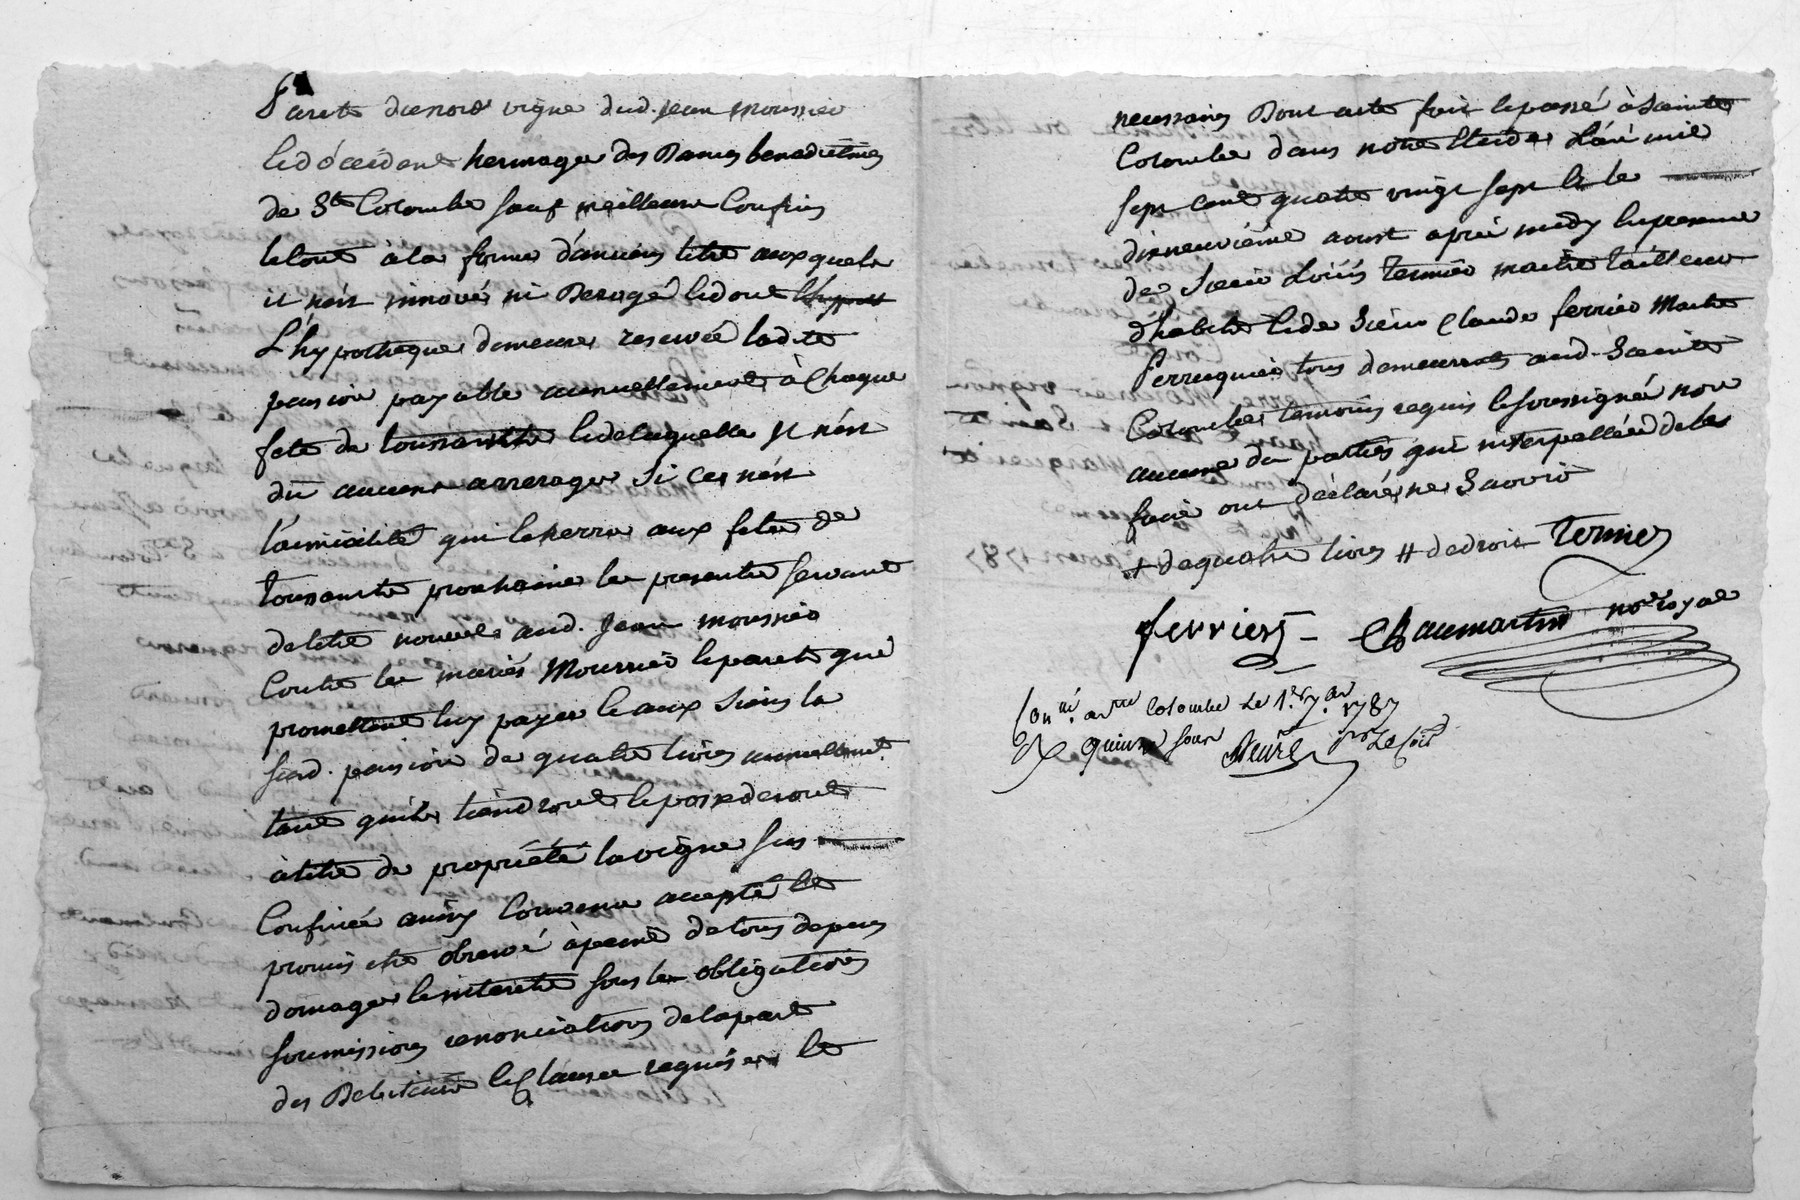 vigne dud. Jean Moussier
hermage des Dames benedictines
de Ste Colombe sauf meilleurs Confins
le tout à la forme d'anciens titre auxquels
il n'est innové ni Derogé
L'hypotheque demeure reservée ladite
pension payable annuellement à Chaque
fete de toussaints de laquelle il n'est
dû aucuns arrerages si ce n'est
qui écherra aux fetes de
toussaints prochaine les presentes servant
de titre nouvel aud. Jean moussier
Contre les mariés Mourrier que
promettent luy payer aux siens la
susd. pension de quatre livres annuellemt.
tant qu'ils tiendront possederont
à titre de propriété la vigne sus
Confinée ainsy Convenu accepté et
promis etre observé à peine de tous depens
domages interets sous les obligations
soumissions renonciations de la part
des Debiteurs Clauses requises et
necessaires Dont acte fait passé à Sainte
Colombe dans notre Etude L'an mil
sept cent quatre vingt sept le
dixneuvieme aoust après midy presence
de Sieur Loüis Termier maitre tailleur
d'habits de Sieur Claude ferrier Maitre
Perruquier tous demeurrants aud. Sainte
Colombe temoins requis soussignés non
aucune des parties qui interpellées de le
faire ont déclaré ne Savoir
+ de quatre livres # de droit Termier
ferrier Chaumartin nore royal
Con.lé a Ste Colombe Le 1.er 7.bre 1787
Reçu quinze sous